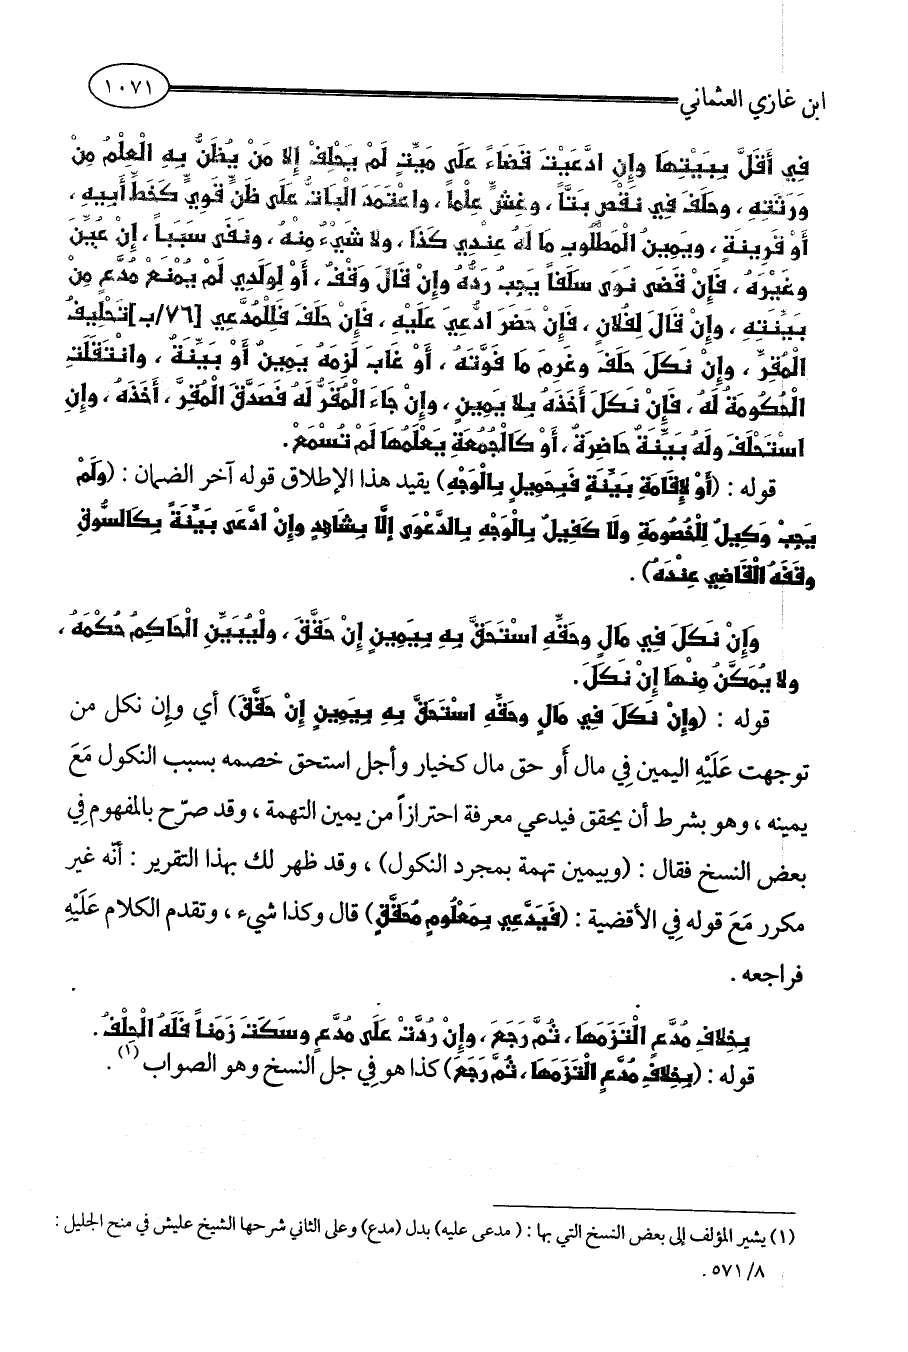 ابن غازي العثماني
١٠٧١
فِي أَقَلَّ بِبَيْتِهَا وإِنِ ادَّعَيْتَ قَضَاءً عَلَى مَيِّتٍ لَمْ يَحْلِفْ إِلا مَنْ يُظَنُّ بِهِ الْعِلْمُ مِنْ
وَرَثَتِهِ ، وحَلَفَ فِي نَقْصٍ بَتًّا ، وغِشٍّ عِلْماً ، واعْتَمَدَ الْبَاتُّ عَلَى ظَنٍّ قَوِيٍّ كَخَطِّ أَبِيهِ ،
أَوْ قَرِينَةٍ ، ويَمِينُ الْمَطْلُوبِ مَا لَهُ عِنْدِي كَذَا ، ولا شَيْءٌ مِنْهُ ، ونَفَى سَبَباً ، إِنْ عُيِّنَ
وغَيْرَهُ ، فَإِنْ قَضَى نَوَى سَلَفاً يَجِبُ رَدُّهُ وإِنْ قَالَ وَقْفٌ ، أَوْ لِوَلَدِي لَمْ يُمْنَعْ مُدَّعٍ مِنْ
بَيِّنَتِهِ ، وإِنْ قَالَ لِفُلانٍ ، فَإِنْ حَضَرَ ادُّعِيَ عَلَيْهِ ، فَإِنْ حَلَفَ فَلِلْمُدَّعِي [٧٦/ب]تَحْلِيفُ
الْمُقِرِّ ، وإِنْ نَكَلَ حَلَفَ وغَرِمَ مَا فَوَّتَهُ ، أَوْ غَابَ لَزِمَهُ يَمِينٌ أَوْ بَيِّنَةٌ ، وانْتَقَلَتِ
الْحُكُومَةُ لَهُ ، فَإِنْ نَكَلَ أَخَذَهُ بِلا يَمِينٍ ، وإِنْ جَاءَ الْمُقَرُّ لَهُ فَصَدَّقَ الْمُقِرَّ ، أَخَذَهُ ، وإِنِ
اسْتَحْلَفَ ولَهُ بَيِّنَةٌ حَاضِرَةٌ ، أَوْ كَالْجُمُعَةِ يَعْلَمُهَا لَمْ تُسْمَعْ .
قوله : (أَوْ لإِقَامَةِ بَيِّنَةٍ فَبِحَمِيلٍ بِالْوَجْهِ) يقيد هذا الإطلاق قوله آخر الضمان : (وَلَمْ
يَجِبْ وَكِيلٌ لِلْخُصُومَةِ ولَا كَفِيلٌ بِالْوَجْهِ بِالدَّعْوَى إِلَّا بِشَاهِدٍ وإِنْ ادَّعَى بَيِّنَةً بِكَالسُّوقِ
وقَفَهُ الْقَاضِي عِنْدَهُ) .
وَإِنْ نَكَلَ فِي مَالٍ وحَقِّهِ اسْتَحَقَّ بِهِ بِيَمِينٍ إِنْ حَقَّقَ ، ولْيُبَيِّنِ الْحَاكِمُ حُكْمَهُ ،
ولا يُمَكَّنُ مِنْهَا إِنْ نَكَلَ .
قوله : (وإِنْ نَكَلَ فِي مَالٍ وحَقِّهِ اسْتَحَقَّ بِهِ بِيَمِينٍ إِنْ حَقَّقَ) أي وإن نكل من
توجهت عَلَيْهِ اليمين فِي مال أَو حق مال كخيار وأجل استحق خصمه بسبب النكول مَعَ
يمينه ، وهو بشرط أن يحقق فيدعي معرفة احترازاً من يمين التهمة ، وقد صرّح بالمفهوم فِي
بعض النسخ فقال : (وبيمين تهمة بمجرد النكول) ، وقد ظهر لك بهذا التقرير : أنّه غير
مكرر مَعَ قوله فِي الأقضية : (فَيَدَّعِي بِمَعْلُومٍ مُحَقَّقٍ) قال وكذا شيء ، وتقدم الكلام عَلَيْهِ
فراجعه .
بِخِلافِ مُدَّعٍ الْتَزَمَهَا ، ثُمَّ رَجَعَ ، وإِنْ رُدَّتْ عَلَى مُدَّعٍ وسَكَتَ زَمَناً فَلَهُ الْحِلْفُ .
قوله : (بِخِلافِ مُدَّعٍ الْتَزَمَهَا ، ثُمَّ رَجَعَ) كذا هو فِي جل النسخ وهو الصواب(١) .
(١) يشير المؤلف إلى بعض النسخ التي بها : ( مدعى عليه) بدل (مدع) وعلى الثاني شرحها الشيخ عليش في منح الجليل :
٨/ ٥٧١ .